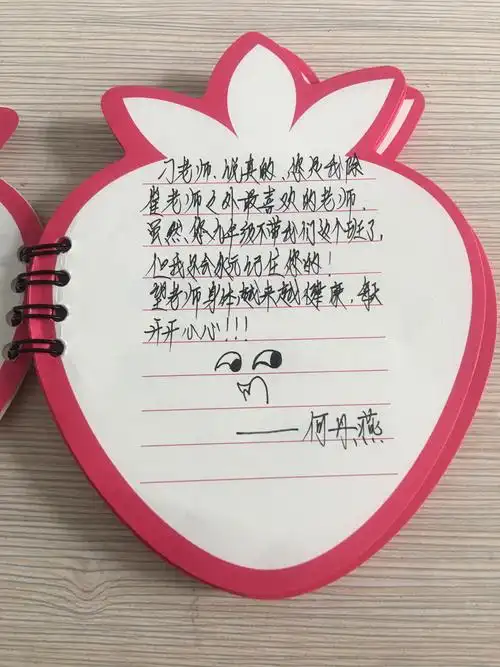 刁老师、说真的、您是我除
崔老师之外最喜欢的老师.
虽然、您九年级不带我们这个班了,
但我还会永远记住您的!
望老师身体越来越健康,
开开心心!!!
——何丹燕